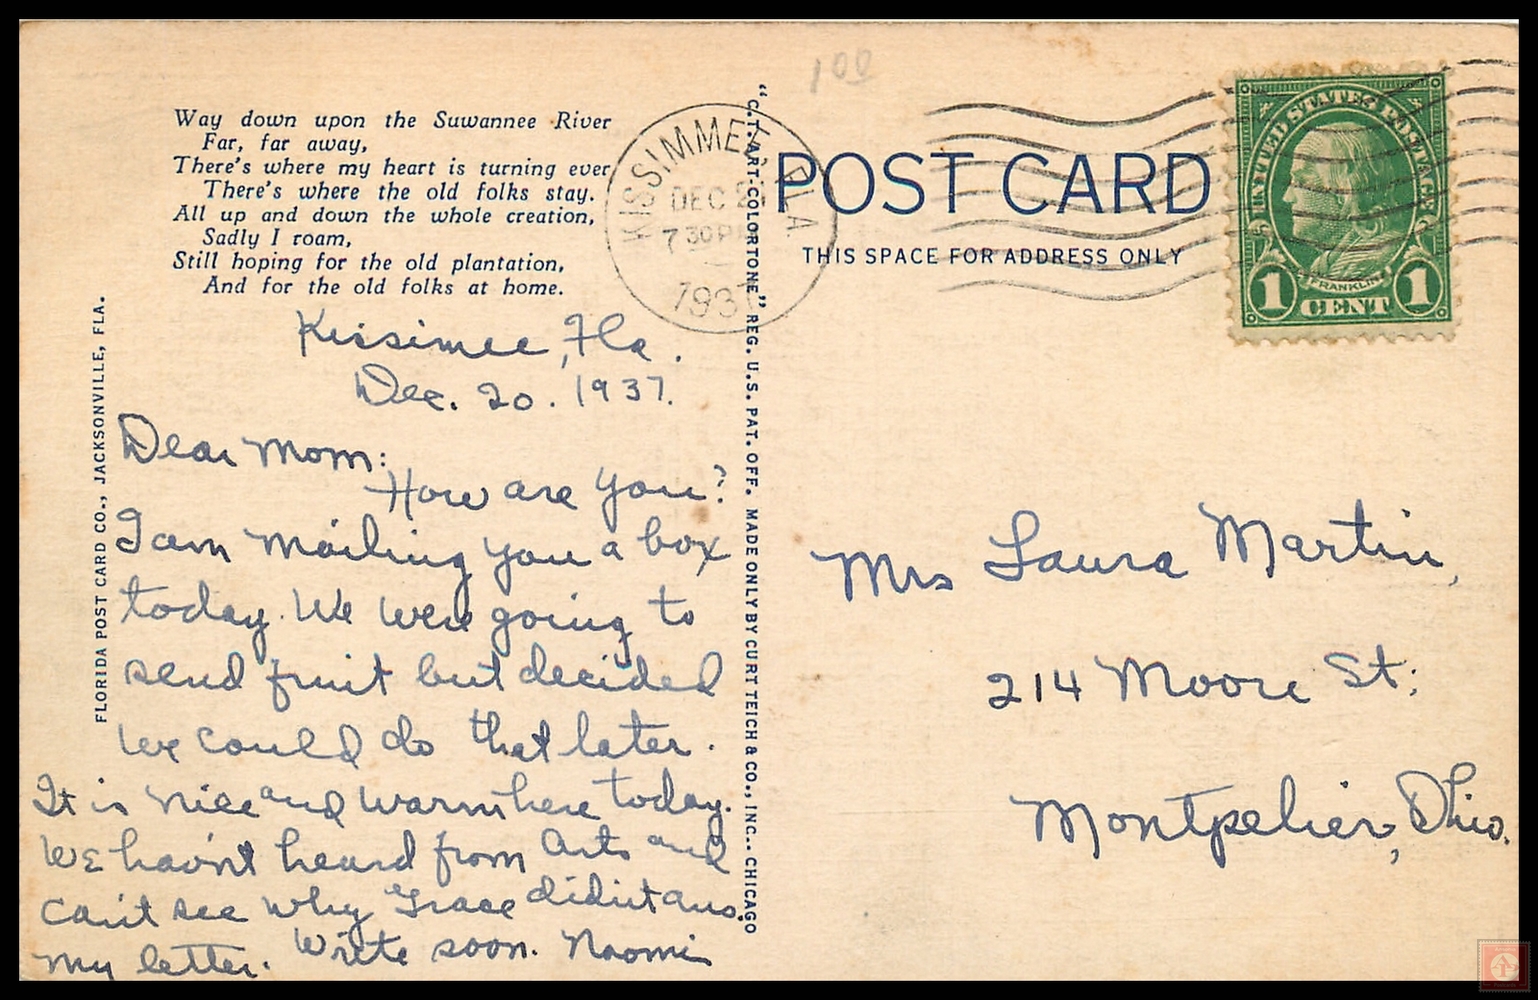 Way down upon the Suwannee River
Far, far away,
There's where my heart is turning ever
There's where the old folks stay.
All up and down the whole creation,
Sadly I roam,
Still hoping for the old plantation,
And for the old folks at home.
Kissimee, Fla.
Dec. 20. 1937.
Dear Mom:
How are you?
I am mailing you a box
today. We were going to
send fruit but decided
we could do that later.
It is nice and and warm here today.
We hav'nt heard from Arts and
can't see why Grace didn't ans.
my letter. Write soon. Naomi
FLORIDA POST CARD CO., JACKSONVILLE, FLA.
"C.T. ART-COLORTONE" REG. U.S. PAT. OFF. MADE ONLY BY CURT TEICH & CO., INC., CHICAGO
100
KISSIMMEE, FLA.
DEC
7 30 PM
1937
POST CARD
THIS SPACE FOR ADDRESS ONLY
UNITED STATES POSTAGE
FRANKLIN
1 CENT 1
Mrs Laura Martin,
214 Moore St.
Montpelier, Ohio.